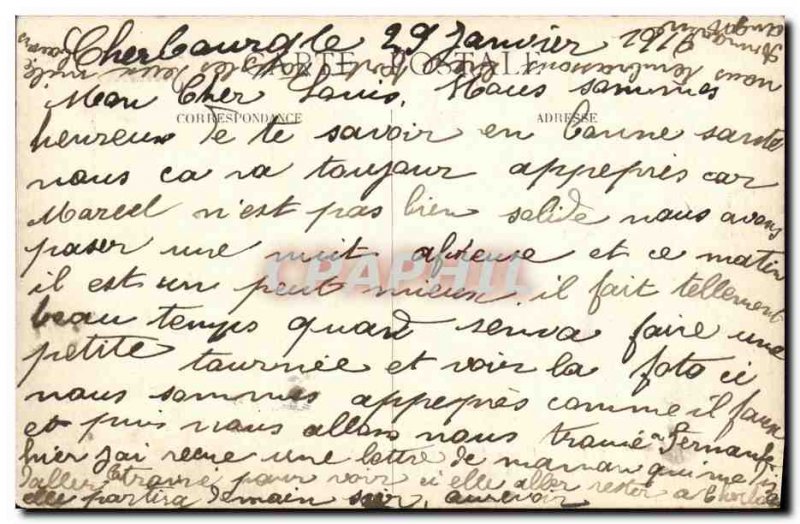 Cherbourg le 29 Janvier 1916
CARTE POSTALE
Mon Cher Louis, Nous sommes
CORRESPONDANCE ADRESSE
heureux de te savoir en bonne santé
nous ca va toujour appeprès car
Marcel n'est pas bien solide nous avons
passer une nuit afreuse et ce matin
il est un peut mieux, il fait tellement
beau temps quand senva faire une
petite tournée et voir la foto si
nous sommes appeprès comme il faux
et puis nous allons nous
hier jai recue une lettre de maman qui me
d'aller pour voir si elle aller rester a
elle partira demain soir, aurevoir
nous tembrassons
CPAPHIL